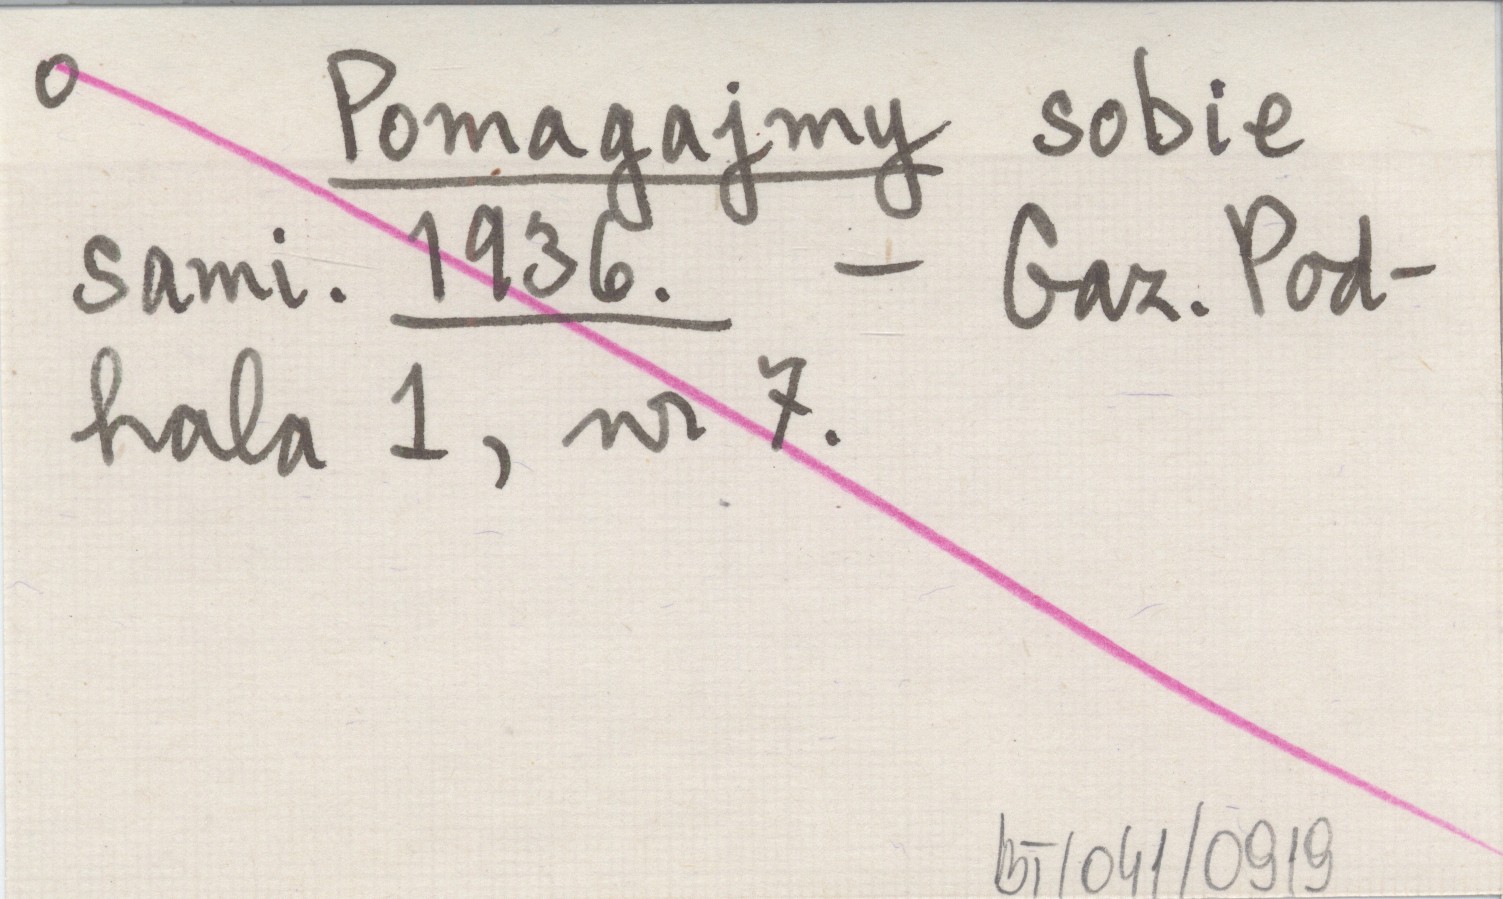 o Pomagajmy sobie
sami. 1936. – Gaz. Pod-
hala 1, nr 7.
BT/041/0919